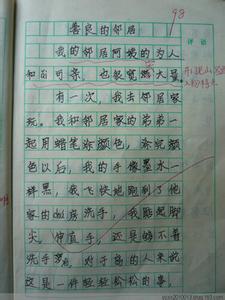 98
善良的邻居
评语
我的邻居阿姨的为人
和可亲，也很宽
有一次，我去邻居家
玩。我和邻居家的弟弟一
起用蜡笔涂颜色，涂完颜
色以后，我的手像墨水一
样黑，我飞快地跑到了他
家的 洗手，我踮起脚
尖，伸直手，还是够不着
洗手 对于高的人来说
这是一件轻轻松松的事